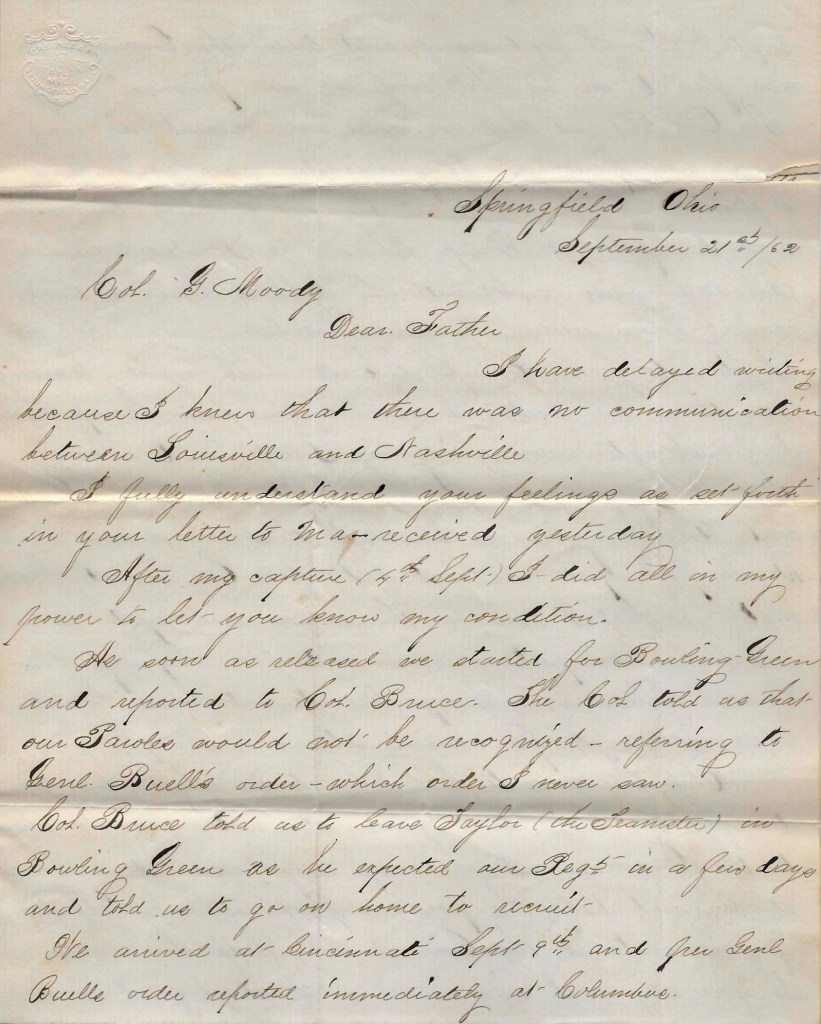 Springfield Ohio
September 21st /62
Col. G. Moody
Dear Father
I have delayed writing
because I knew that there was no communication
between Louisville and Nashville
I fully understand your feelings as set forth
in your letter to Ma - received yesterday
After my capture (4th Sept) I did all in my
power to let you know my condition.
As soon as released we started for Bowling Green
and reported to Col. Bruce. The Col told us that
our Paroles would not be recognized - referring to
Genl. Buell's order - which order I never saw.
Col. Bruce told us to leave Taylor (the Teamster) in
Bowling Green as he expected our Regt in a few days
and told us to go on home to recruit
We arrived at Cincinnati Sept 9th and per Genl
Buells order reported immediately at Columbus.